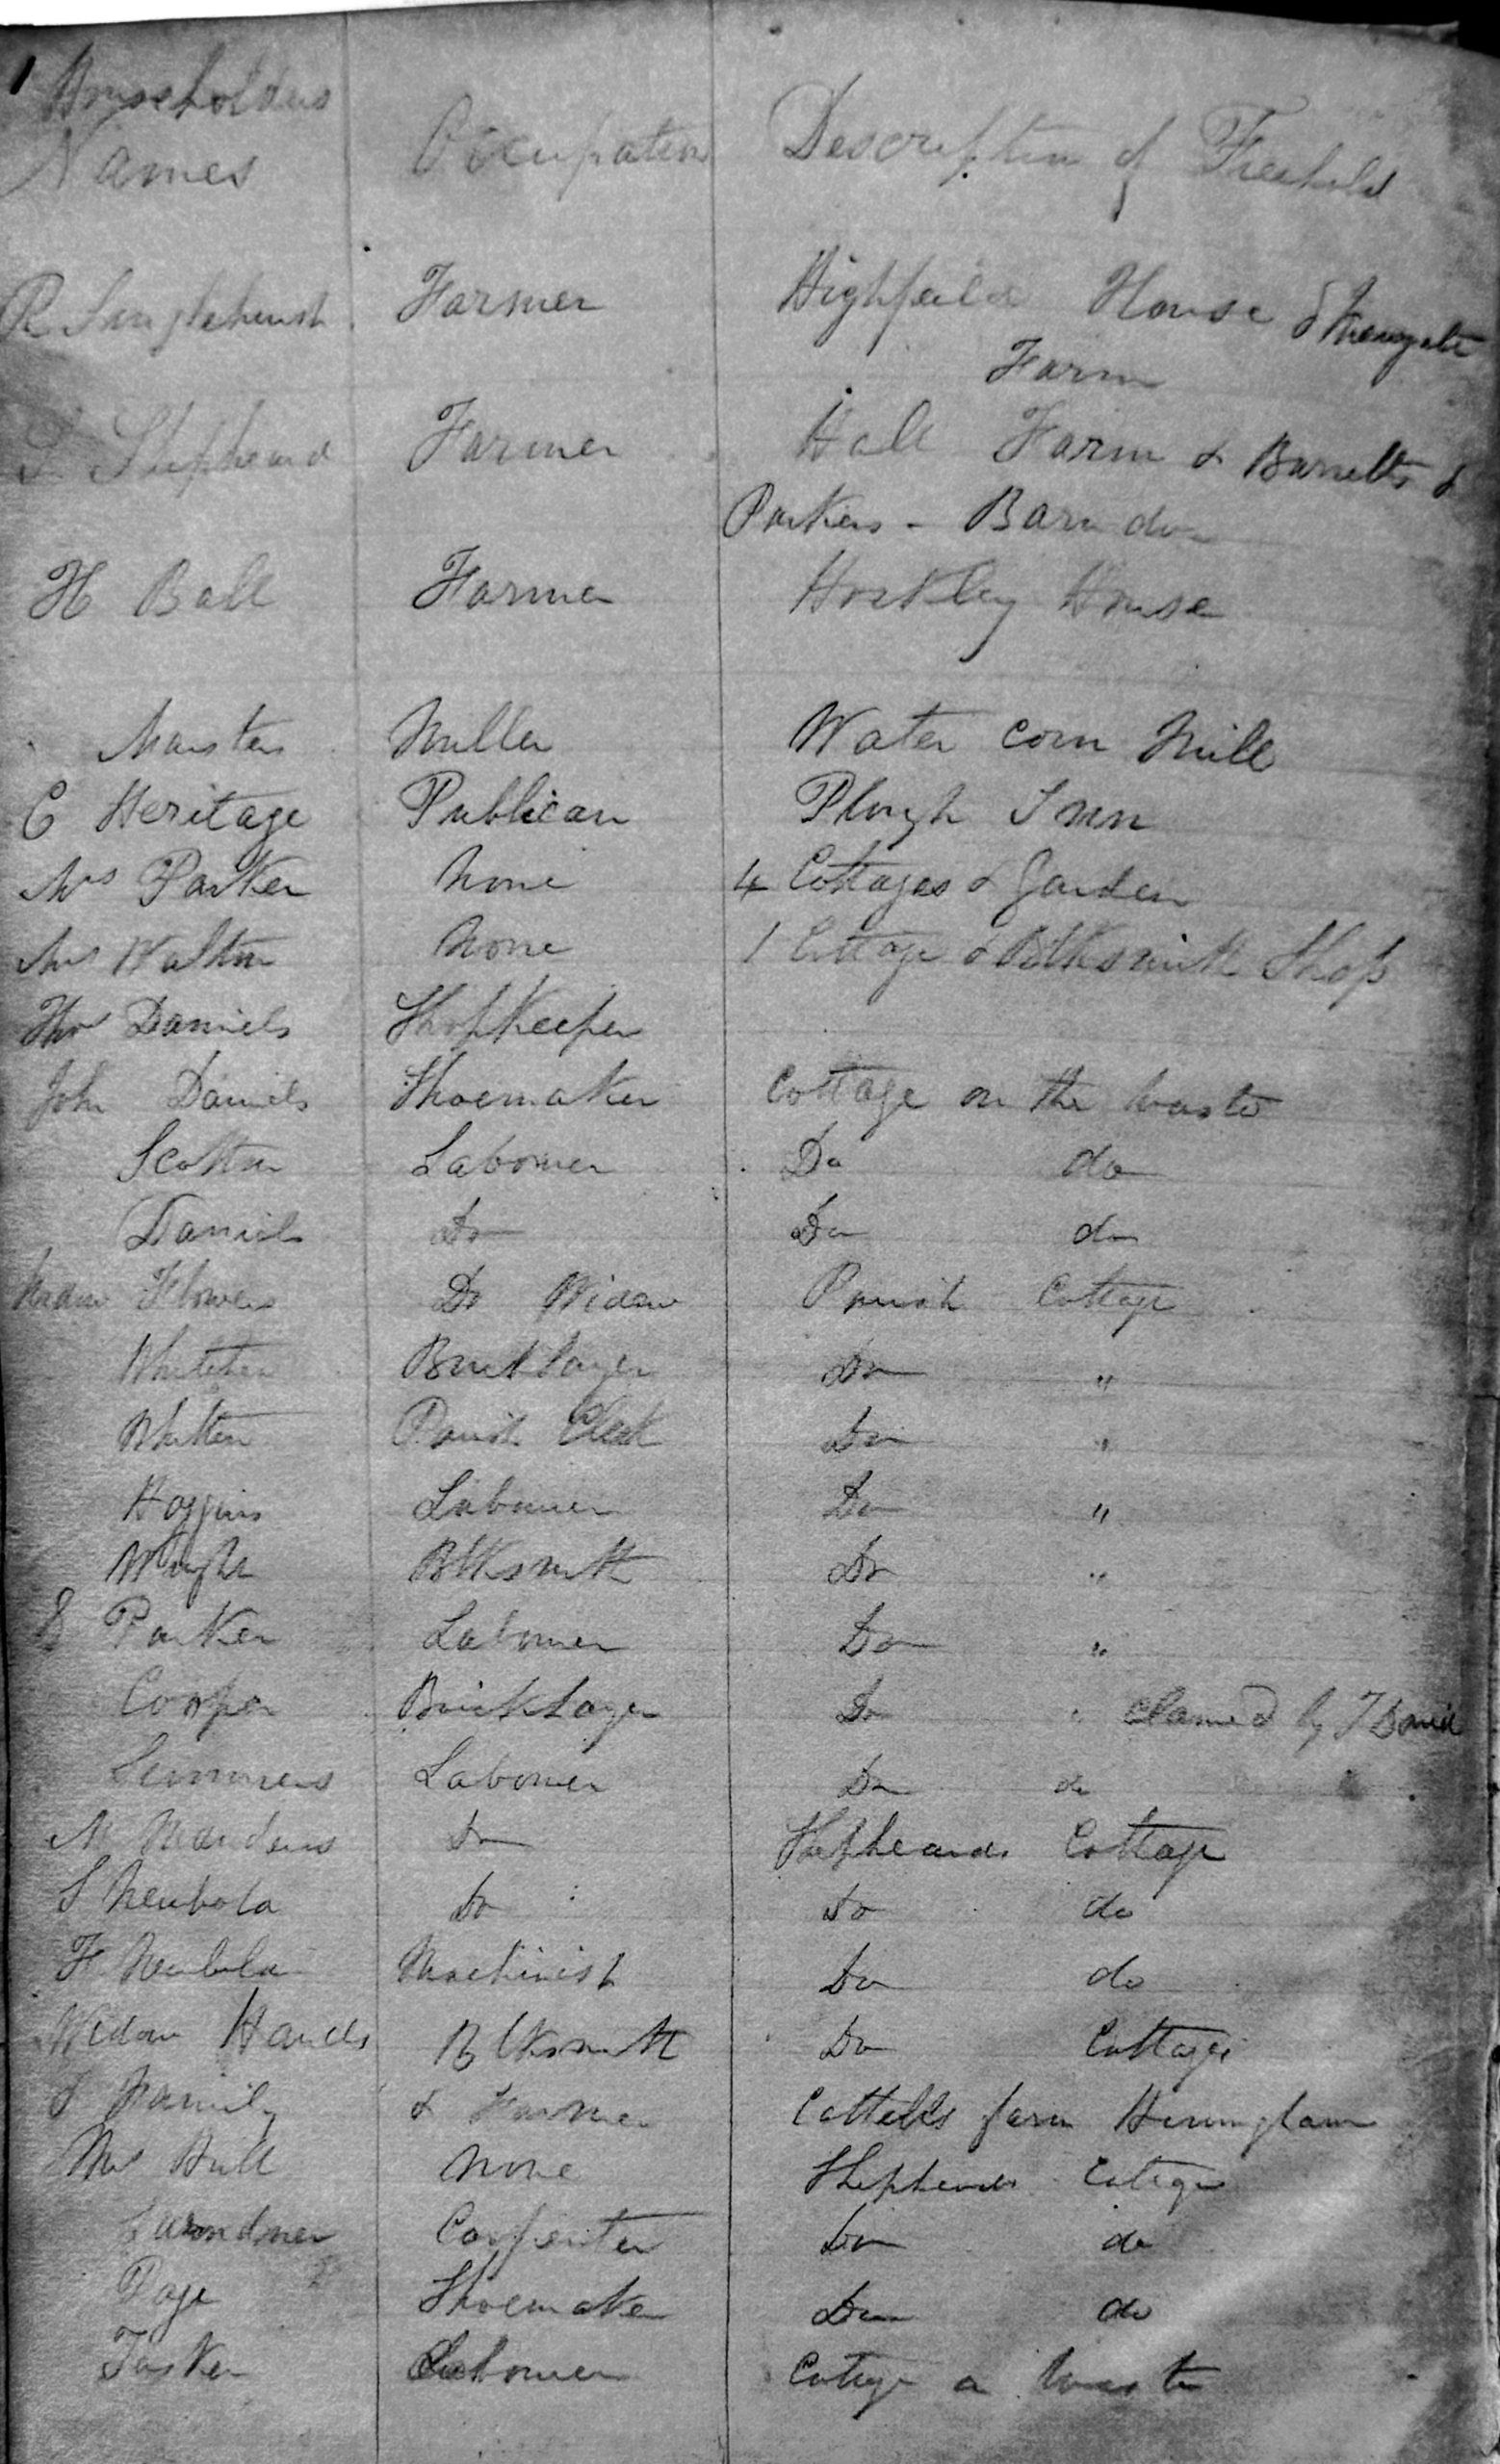 1 Householders
Names Occupation Description of Freehold
R Singlehurst Farmer Highfeild House &
Farm
S Shepheard Farmer Hall Farm & Barnetts &
Parkers - Barn do
H Ball Farmer Hockley House
Marsters Miller Water Corn Mill
C Heritage Publican Plough Inn
Mrs Parker None 4 Cottages & Garden
Mrs Walton None 1 Cottage & Blksmith Shop
Thos Daniels Shopkeeper
John Daniels Shoemaker Cottage on the Waste
Scotton Labourer Do do
Daniels Do Do do
Widow Flowers Do Widow Parish Cottage
Bricklayer Do "
Parish Clerk Do "
Hoggins Labourer Do "
Wright Blksmith Do "
Parker Labourer Do "
Cooper Bricklayer Do " Claimed by T Daniel
Summers Labourer Do do
M Do Shepheards Cottage
S Newbold Do Do do
F Newbold Machinist Do do
Widow Hands Blksmith Do Cottage
& Family & Farmer Cottells farm
Mrs Hull None Shepheards Cottage
Carpenter Do do
Page Shoemaker Do do
Tasker Labourer Cottage on Waste